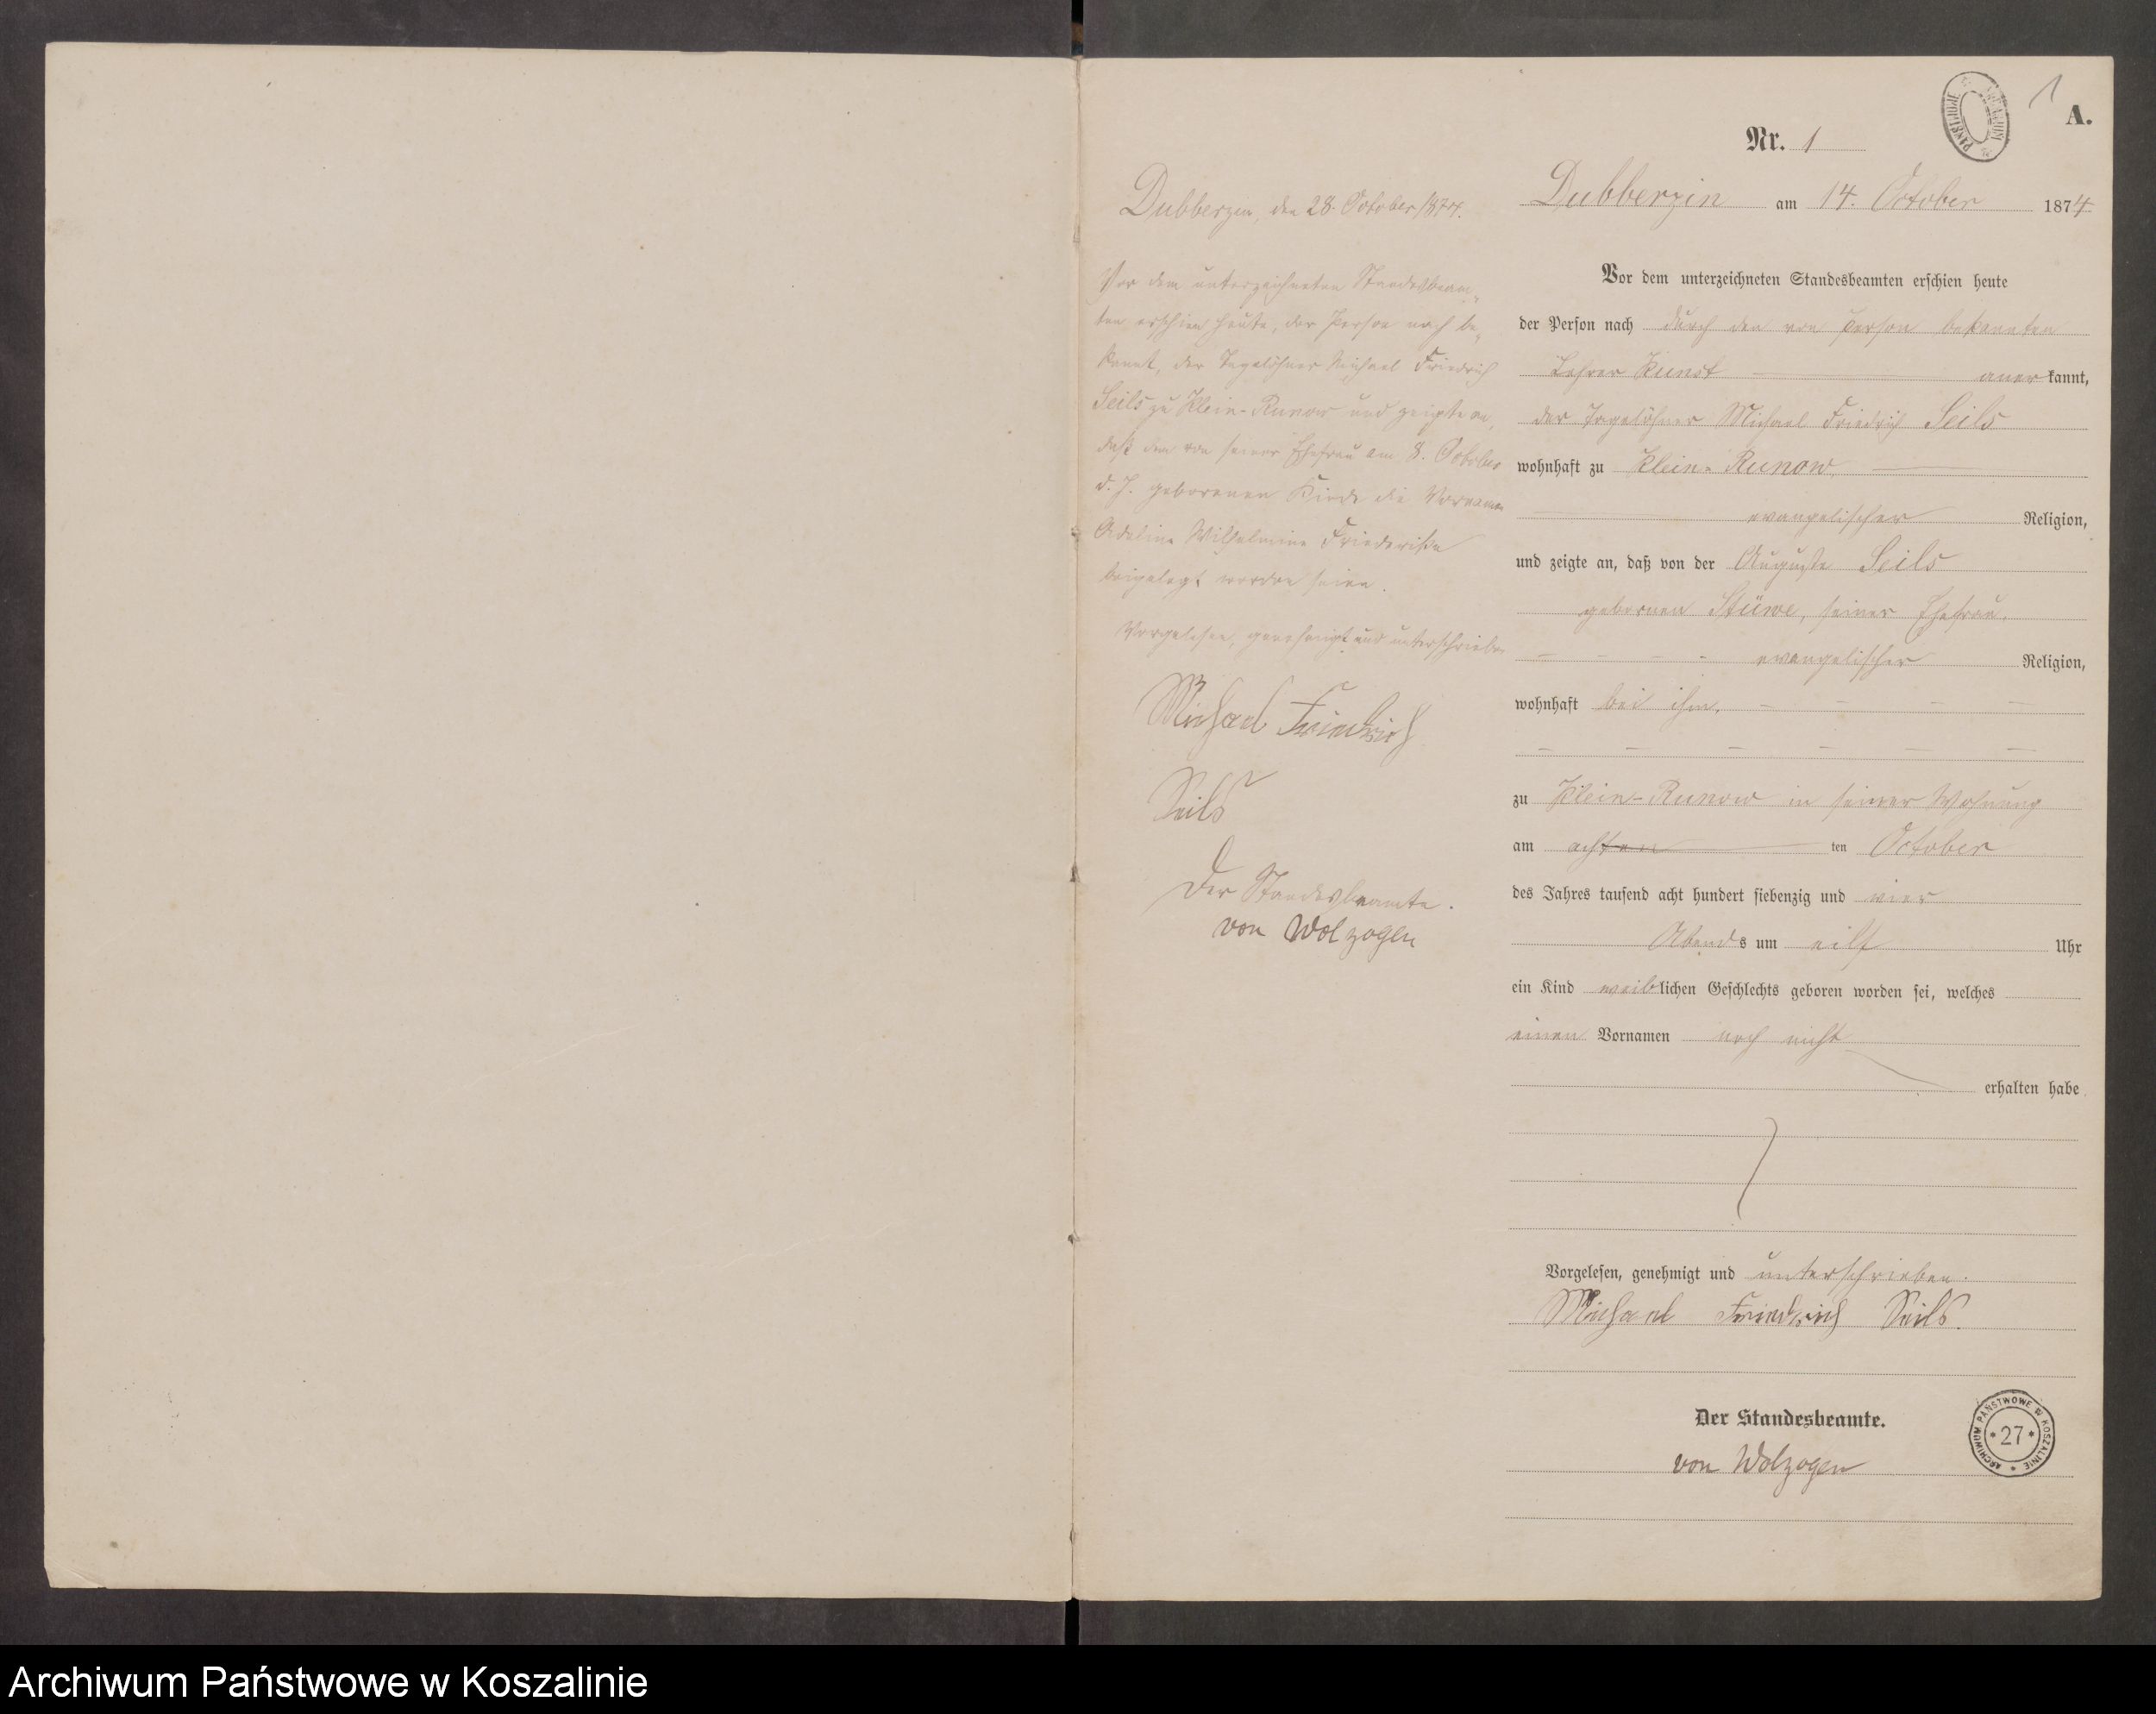 1
A.
Nr. 1
Dubberzin am 14. October 1874
Vor dem unterzeichneten Standesbeamten erschien heute
der Person nach durch den von Person bekannten
Lehrer Kunst anerkannt,
der Tagelöhner Michael Friedrich Seils
wohnhaft zu Klein-Runow,
evangelischer Religion,
und zeigte an, daß von der Auguste Seils
gebornen Stüwe, seiner Ehefrau,
evangelischer Religion,
wohnhaft bei ihm,
zu Klein-Runow in seiner Wohnung
am achten ten October
des Jahres tausend acht hundert siebenzig und vier
Abends um eilf Uhr
ein Kind weiblichen Geschlechts geboren worden sei, welches
einen Vornamen noch nicht
erhalten habe
Vorgelesen, genehmigt und unterschrieben.
Michael Friedrich Seils.
Der Standesbeamte.
von Wolzogen
ARCHIWUM PAŃSTWOWE W KOSZALINIE
* 27 *
Dubberzin, den 28. October 1874.
Vor dem unterzeichneten Standesbeam-
ten erschien heute, der Person nach be-
kannt, der Tagelöhner Michael Friedrich
Seils zu Klein-Runow und zeigte an,
daß dem von seiner Ehefrau am 8. October
d. J. geborenen Kinde die Vornamen
Adeline Wilhelmine Friederike
beigelegt worden seien.
Vorgelesen, genehmigt und unterschrieben
Michael Friedrich
Seils
Der Standesbeamte.
von Wolzogen
Archiwum Państwowe w Koszalinie